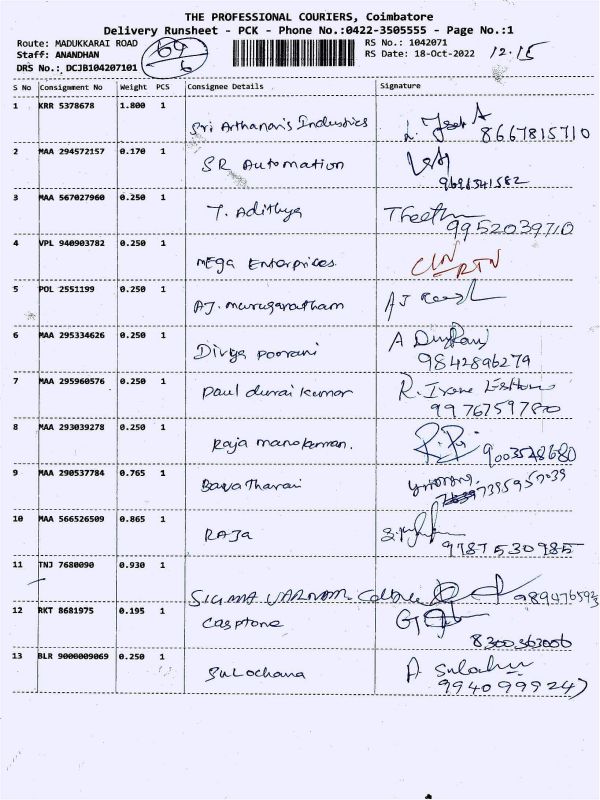 THE PROFESSIONAL COURIERS, Coimbatore
Delivery Runsheet - PCK - Phone No.:0422-3505555 - Page No.:1
Route: MADUKKARAI ROAD RS No.: 1042071
Staff: ANANDHAN RS Date: 18-Oct-2022 12.15
DRS No.: DCJB104207101
S No Consignment No Weight PCS Consignee Details Signature
1 KRR 5378678 1.800 1
Sri Arthanari's Industries 8667815710
2 MAA 294572157 0.170 1
SR Automation
9696541582
3 MAA 567027960 0.250 1
T. Adithya
9952039710
4 VPL 940903782 0.250 1
Mega Enterprises RTN
5 POL 2551199 0.250 1
AJ. Murugaratham AJ
6 MAA 295334626 0.250 1
Divya Poorani A
9842896279
7 MAA 295960576 0.250 1
Paul durai kumar R.
9976759780
8 MAA 293039278 0.250 1
Raja manokaran. 9003528680
9 MAA 290537784 0.765 1
Bavatharani 7395957039
10 MAA 566526509 0.865 1
RAJA
9787530985
11 TNJ 7680090 0.930 1
SIGMA VARNAM
12 RKT 8681975 0.195 1
Casptone
8300363006
13 BLR 9000009069 0.250 1
Sulochana A
9940999247